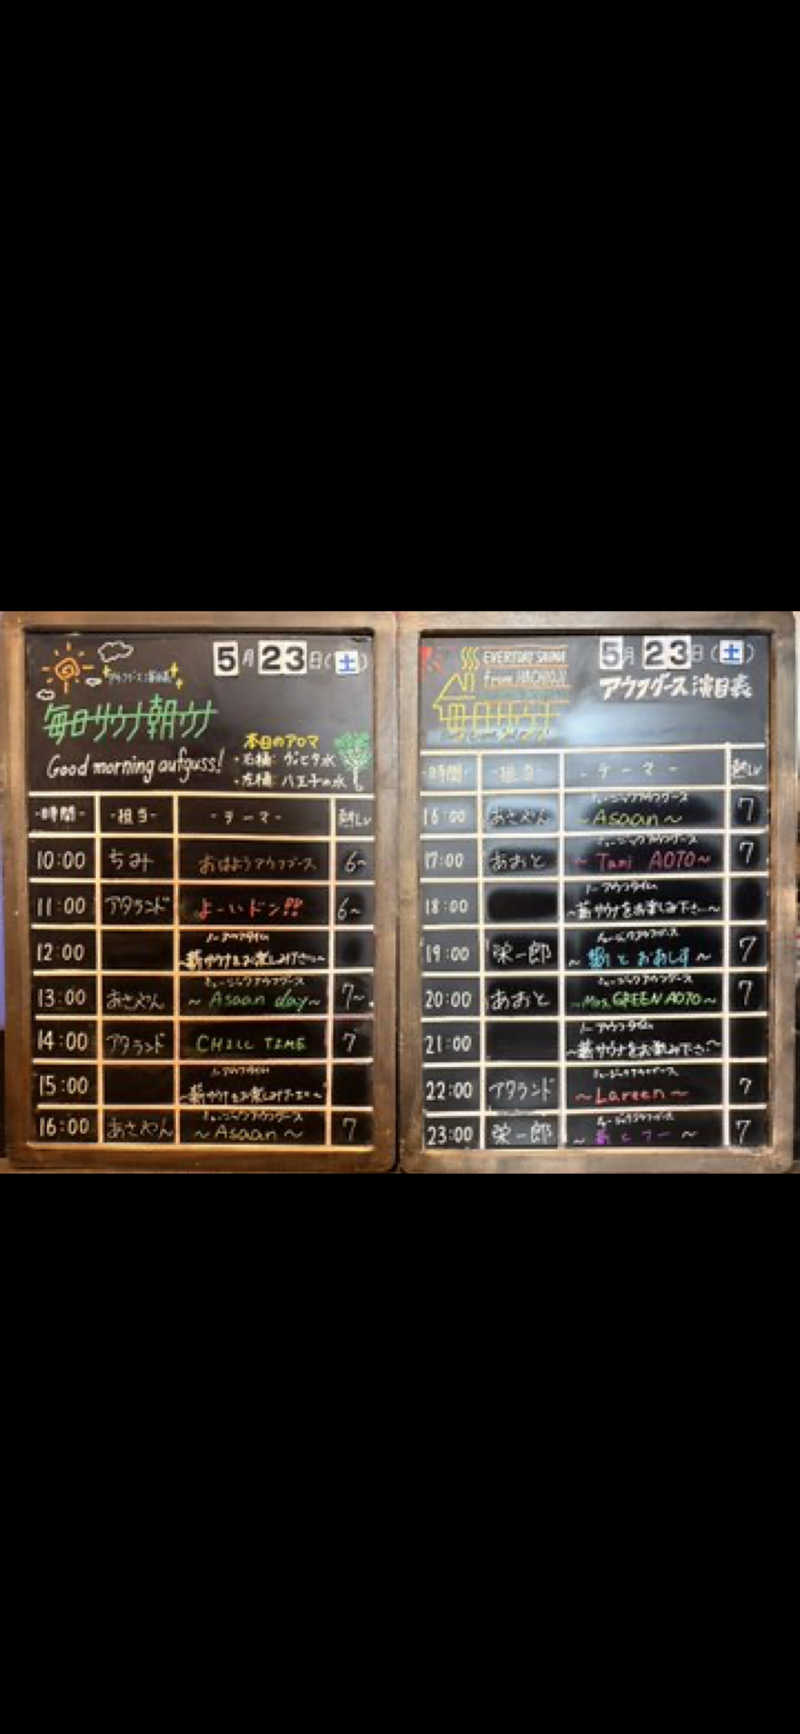 5月23日(土)
アウフグース演目表
毎日サウナ朝ウナ
Good morning aufguss!
本日のアロマ
・右桶:ヴィヒタ水
・左桶:八王子の水
-時間- -担当- -テーマ- 熱Lv
10:00 ちみ おはようアウフグース 6~
11:00 アタランド よーいドン!! 6~
12:00 ノーアウフタイム
~薪サウナをお楽しみ下さい~
13:00 あさやん ミュージックアウフグース
~Asaan day~ 7~
14:00 アタランド CHILL TIME 7
15:00 ノーアウフタイム
~薪サウナをお楽しみ下さい~
16:00 あさやん ミュージックアウフグース
~Asaan~ 7
EVERYDAY SAUNA
from HACHIOJI
5月23日(土)
アウフグース演目表
毎日サウナ
-時間- -担当- -テーマ- 熱Lv
16:00 あさやん ミュージックアウフグース
~Asaan~ 7
17:00 あおと ミュージックアウフグース
~Tani AOTO~ 7
18:00 ノーアウフタイム
~薪サウナをお楽しみ下さい~
19:00 栄一郎 ミュージックアウフグース
~ と おあしす ~ 7
20:00 あおと ミュージックアウフグース
~Mrs. GREEN AOTO~ 7
21:00 ノーアウフタイム
~薪サウナをお楽しみ下さい~
22:00 アタランド ミュージックアウフグース
~Lareen~ 7
23:00 栄一郎 ミュージックアウフグース
~ と ~ 7